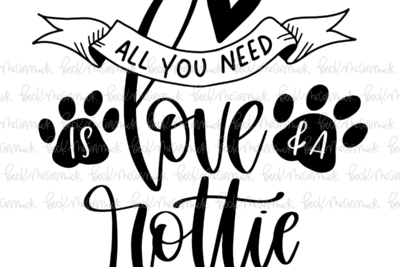 ALL YOU NEED
IS love & A
rottie